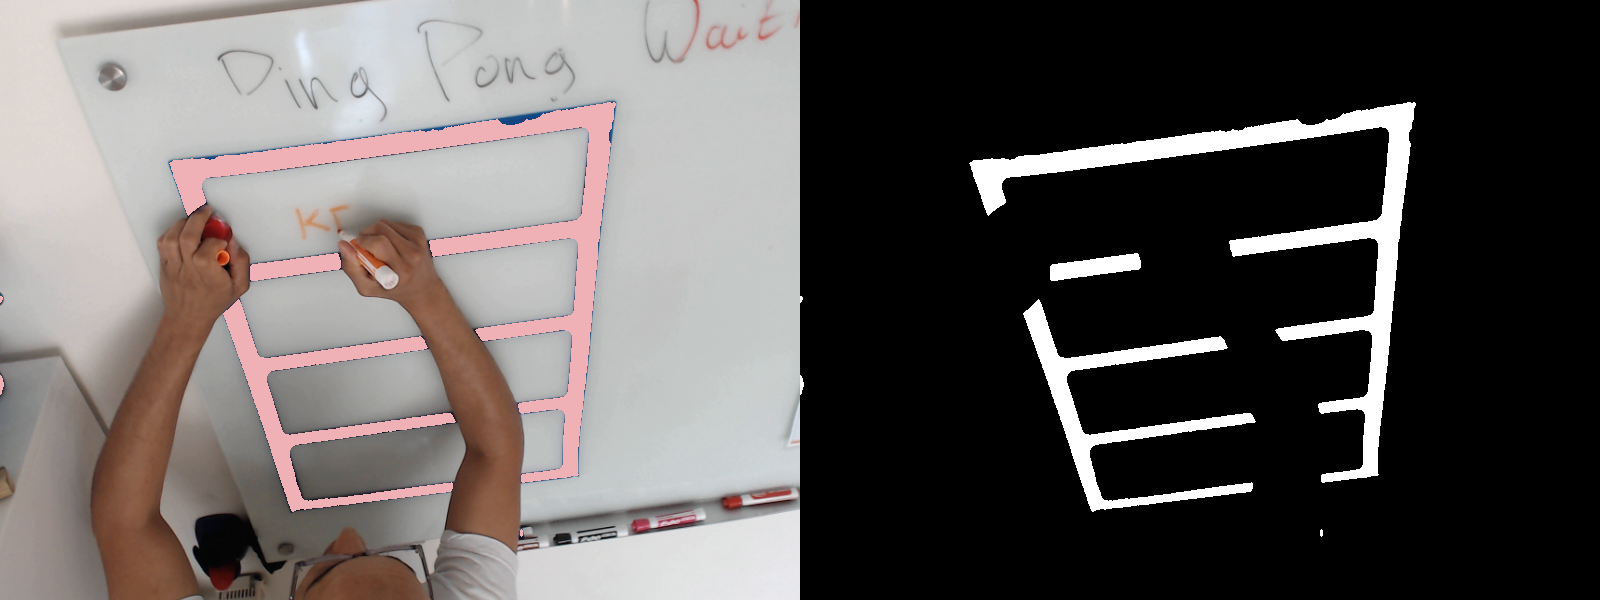 Ding Pong Wait
KE